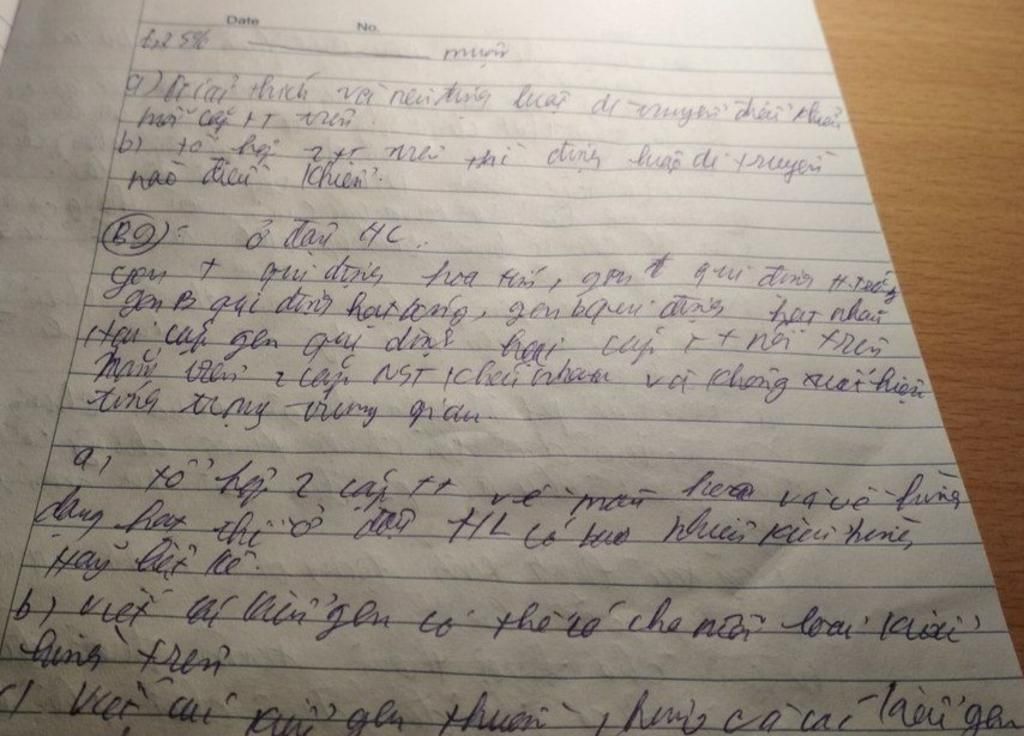 Date No.
muộn
a) Giải thích và nêu định luật di truyền điều khiển
mỗi cặp tt trên
b) tổ hợp 2 tt trên thì định luật di truyền
nào điều khiển.
B9): ở đậu HL.
gen T qui định hoa tím, gen t qui định H.trắng
gen B qui định hạt bóng, gen b qui định hạt nhăn
Hai cặp gen qui định hai cặp tt nói trên
nằm trên 2 cặp NST khác nhau và không xuất hiện
tính trạng trung gian.
a) tổ hợp 2 cặp tt về màu hoa và về hình
dạng hạt thì ở đậu HL có bao nhiêu kiểu hình,
Hãy liệt kê.
b) viết các kiểu gen có thể có cho mỗi loại kiểu
hình trên
c) Viết các kiểu gen thuần, các kiểu gen